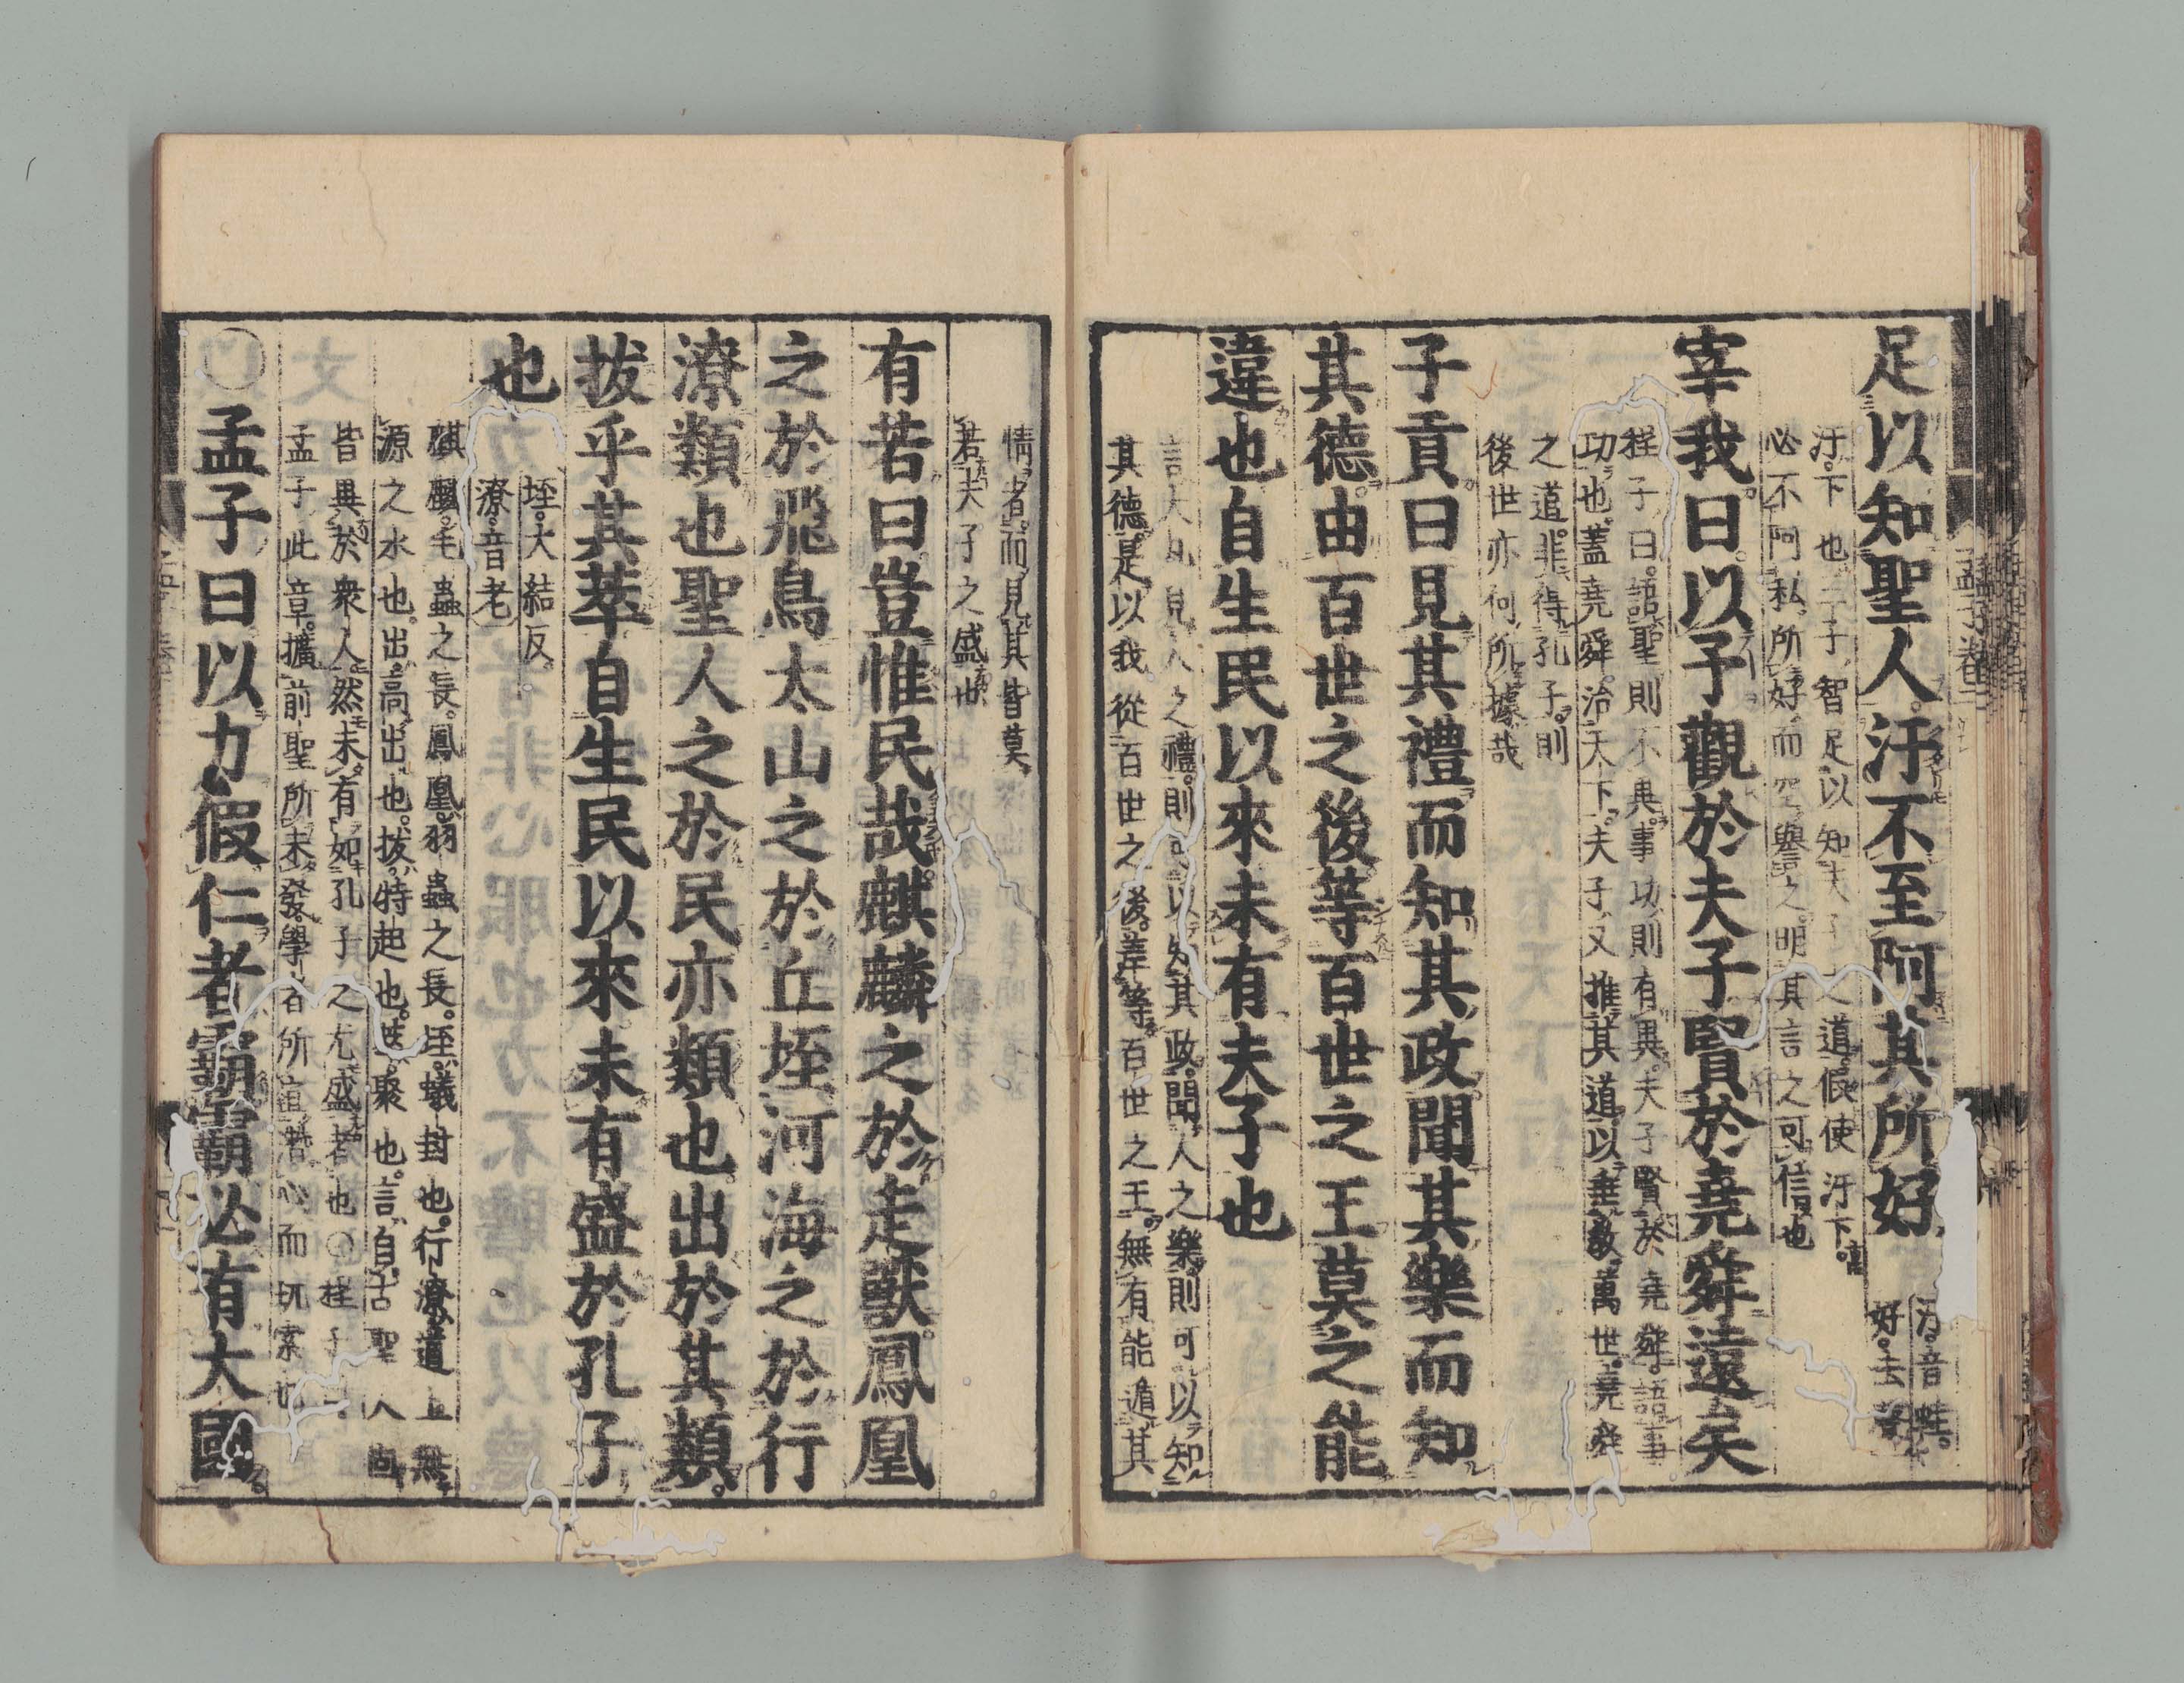 足以知聖人汙不至阿其所好
汙音
好去
汙下也三子智足以知夫子之道假使汙下
必不阿私所好而空譽之明其言之可信也
宰我曰以予觀於夫子賢於堯舜遠矣
程子曰語聖則不異事功則有異夫子賢於堯舜語事
功也蓋堯舜治天下夫子又推其道以垂教萬世堯舜
之道非得孔子則
後世亦何所據哉
子貢曰見其禮而知其政聞其樂而知
其德由百世之後等百世之王莫之能
違也自生民以來未有夫子也
言大凡見人之禮則可以知其政聞人之樂則可以知
其德是以我從百世之後差等百世之王無有能遁其
情者而見其皆莫
若夫子之盛也
有若曰豈惟民哉麒麟之於走獸鳳凰
之於飛鳥太山之於丘垤河海之於行
潦類也聖人之於民亦類也出於其類
拔乎其萃自生民以來未有盛於孔子
也
垤大結反
潦音老
麒麟毛蟲之長鳳凰羽蟲之長垤蟻封也行潦道上無
源之水也出高出也拔特起也萃聚也言自古聖人固
皆異於衆人然未有如孔子之尤盛者也○程子曰
孟子此章擴前聖所未發學者所宜潛心而玩索也
○孟子曰以力假仁者霸霸必有大國
孟子卷二